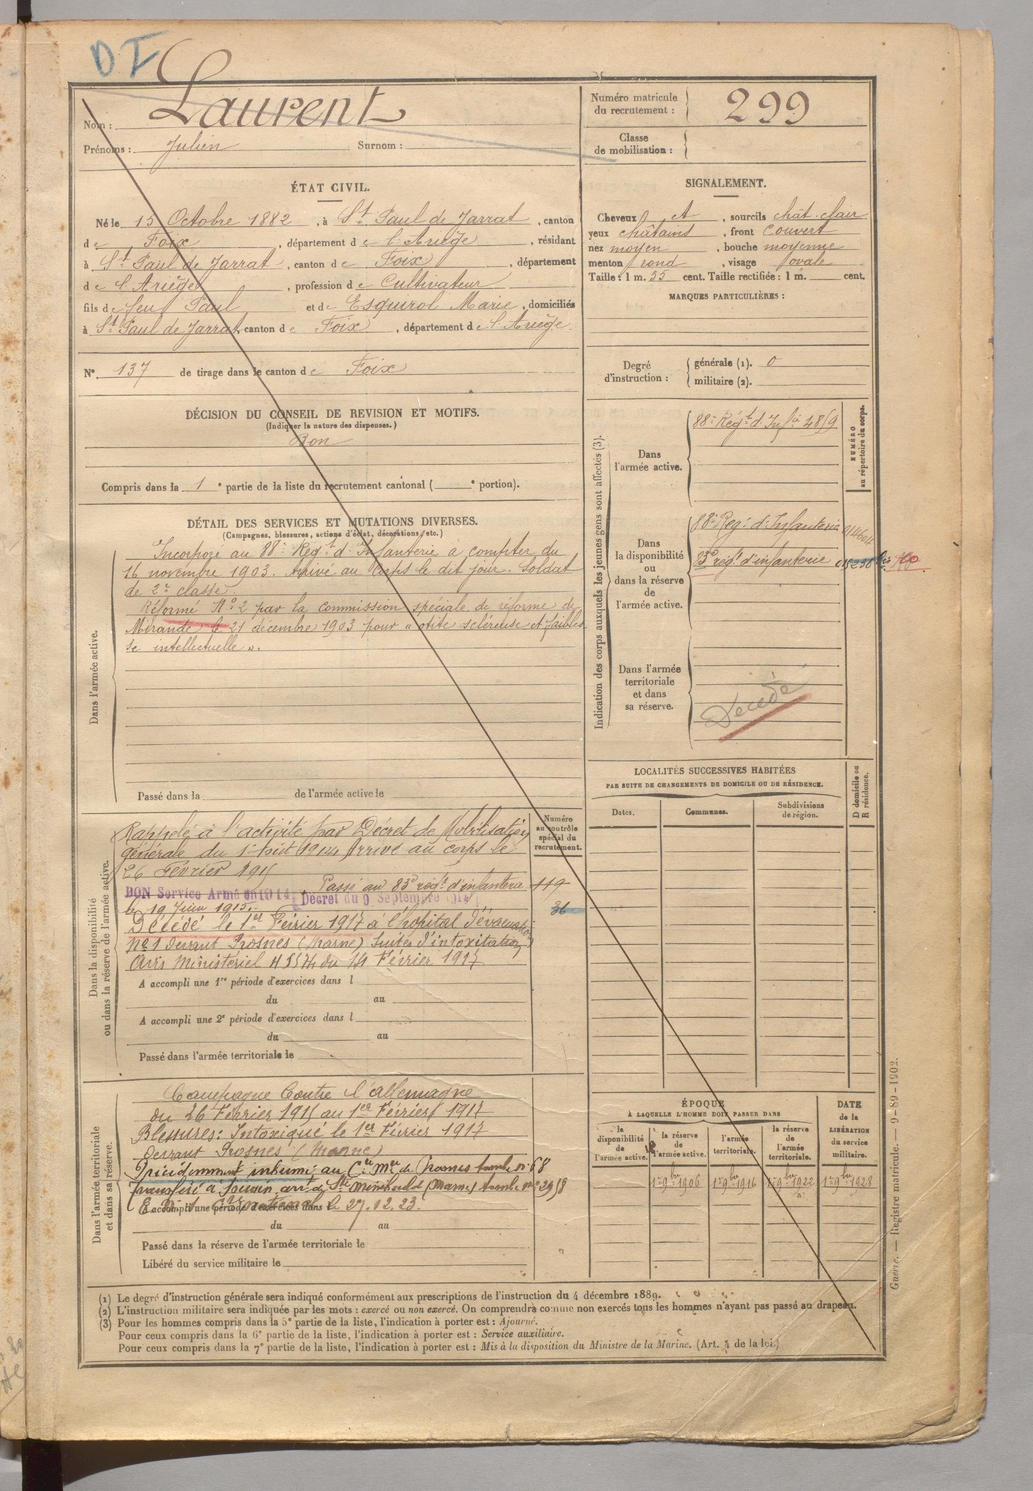 DI
Nom : Laurent
Prénoms : Julien Surnom :
Numéro matricule du recrutement : 299
Classe de mobilisation :
ÉTAT CIVIL.
Né le 15 Octobre 1882, à St Paul de Jarrat, canton
de Foix, département de l'Ariège, résidant
à St Paul de Jarrat, canton de Foix, département
de l'Ariège, profession de Cultivateur
fils de feu Paul et de Esquirol Marie, domiciliés
à St Paul de Jarrat, canton de Foix, département de l'Ariège.
SIGNALEMENT.
Cheveux et, sourcils chât. clair
yeux châtains, front couvert
nez moyen, bouche moyenne
menton rond, visage ovale
Taille : 1 m. 55 cent. Taille rectifiée : 1 m. cent.
MARQUES PARTICULIÈRES :
N° 137 de tirage dans le canton de Foix
Degré d'instruction : générale (1). 0
militaire (2).
DÉCISION DU CONSEIL DE REVISION ET MOTIFS.
(Indiquer la nature des dispenses.)
Bon
Compris dans la 1e partie de la liste du recrutement cantonal ( e portion).
DÉTAIL DES SERVICES ET MUTATIONS DIVERSES.
(Campagnes, blessures, actions d'éclat, décorations, etc.)
Dans l'armée active.
Incorporé au 88e Régt d'Infanterie à compter du
16 novembre 1903. Arrivé au Corps le dit jour. Soldat
de 2e classe.
Réformé N°2 par la commission spéciale de réforme de
Mirande le 21 décembre 1903 pour « otite scléreuse et faibles
se intellectuelle ».
Passé dans la de l'armée active le
Indication des corps auxquels les jeunes gens sont affectés (3).
NUMÉRO au répertoire du corps.
Dans l'armée active.
88e Régt d'Infie 4859
Dans la disponibilité ou dans la réserve de l'armée active.
88e Reg. d'Infanterie
83e régt d'infanterie
Dans l'armée territoriale et dans sa réserve.
Décédé
LOCALITÉS SUCCESSIVES HABITÉES
PAR SUITE DE CHANGEMENTS DE DOMICILE OU DE RÉSIDENCE.
D domicile ou R résidence.
Dates. Communes. Subdivisions de région.
Dans la disponibilité ou dans la réserve de l'armée active.
Numéro au contrôle spécial du recrutement.
Rappelé à l'activité par Décret de Mobilisation
générale du 1er Août 1914 Arrivé au corps le
26 Février 1915
Passé au 83e régt d'infanterie 119
BON Service Armé en 1914, Décret du 9 Septembre 1914
le 19 Juin 1915. 36
Décédé le 1er Février 1917 à l'hopital d'évacuation
N°1 Devant Prosnes (Marne) Suites d'intoxication
Avis Ministériel H 5574 du 14 Février 1917
A accompli une 1re période d'exercices dans l
du au
A accompli une 2e période d'exercices dans l
du au
Passé dans l'armée territoriale le
Dans l'armée territoriale et dans sa réserve.
Campagne Contre l'allemagne
du 26 Février 1915 au 1er Février 1917
Blessures : Intoxiqué le 1er Février 1917
Devant Prosnes (Marne)
Précédemment inhumé au Cre Mre de Prosnes tombe n° 68
Transféré à Souain arrt de Ste Menehould (Marne) tombe n° 2958
A accompli une période d'exercices dans l
le 27.12.23.
du au
Passé dans la réserve de l'armée territoriale le
Libéré du service militaire le
ÉPOQUE
À LAQUELLE L'HOMME DOIT PASSER DANS
la disponibilité de l'armée active. la réserve de l'armée active. l'armée territoriale. la réserve de l'armée territoriale.
DATE de la LIBÉRATION du service militaire.
1er 9bre 1906 1er 9bre 1916 1er 9bre 1922 1er 9bre 1928
(1) Le degré d'instruction générale sera indiqué conformément aux prescriptions de l'instruction du 4 décembre 1889.
(2) L'instruction militaire sera indiquée par les mots : exercé ou non exercé. On comprendra comme non exercés tous les hommes n'ayant pas passé au drapeau.
(3) Pour les hommes compris dans la 5e partie de la liste, l'indication à porter est : Ajourné.
Pour ceux compris dans la 6e partie de la liste, l'indication à porter est : Service auxiliaire.
Pour ceux compris dans la 7e partie de la liste, l'indication à porter est : Mis à la disposition du Ministre de la Marine. (Art. 4 de la loi.)
Guerre. — Registre matricule. — 9-89-1902.